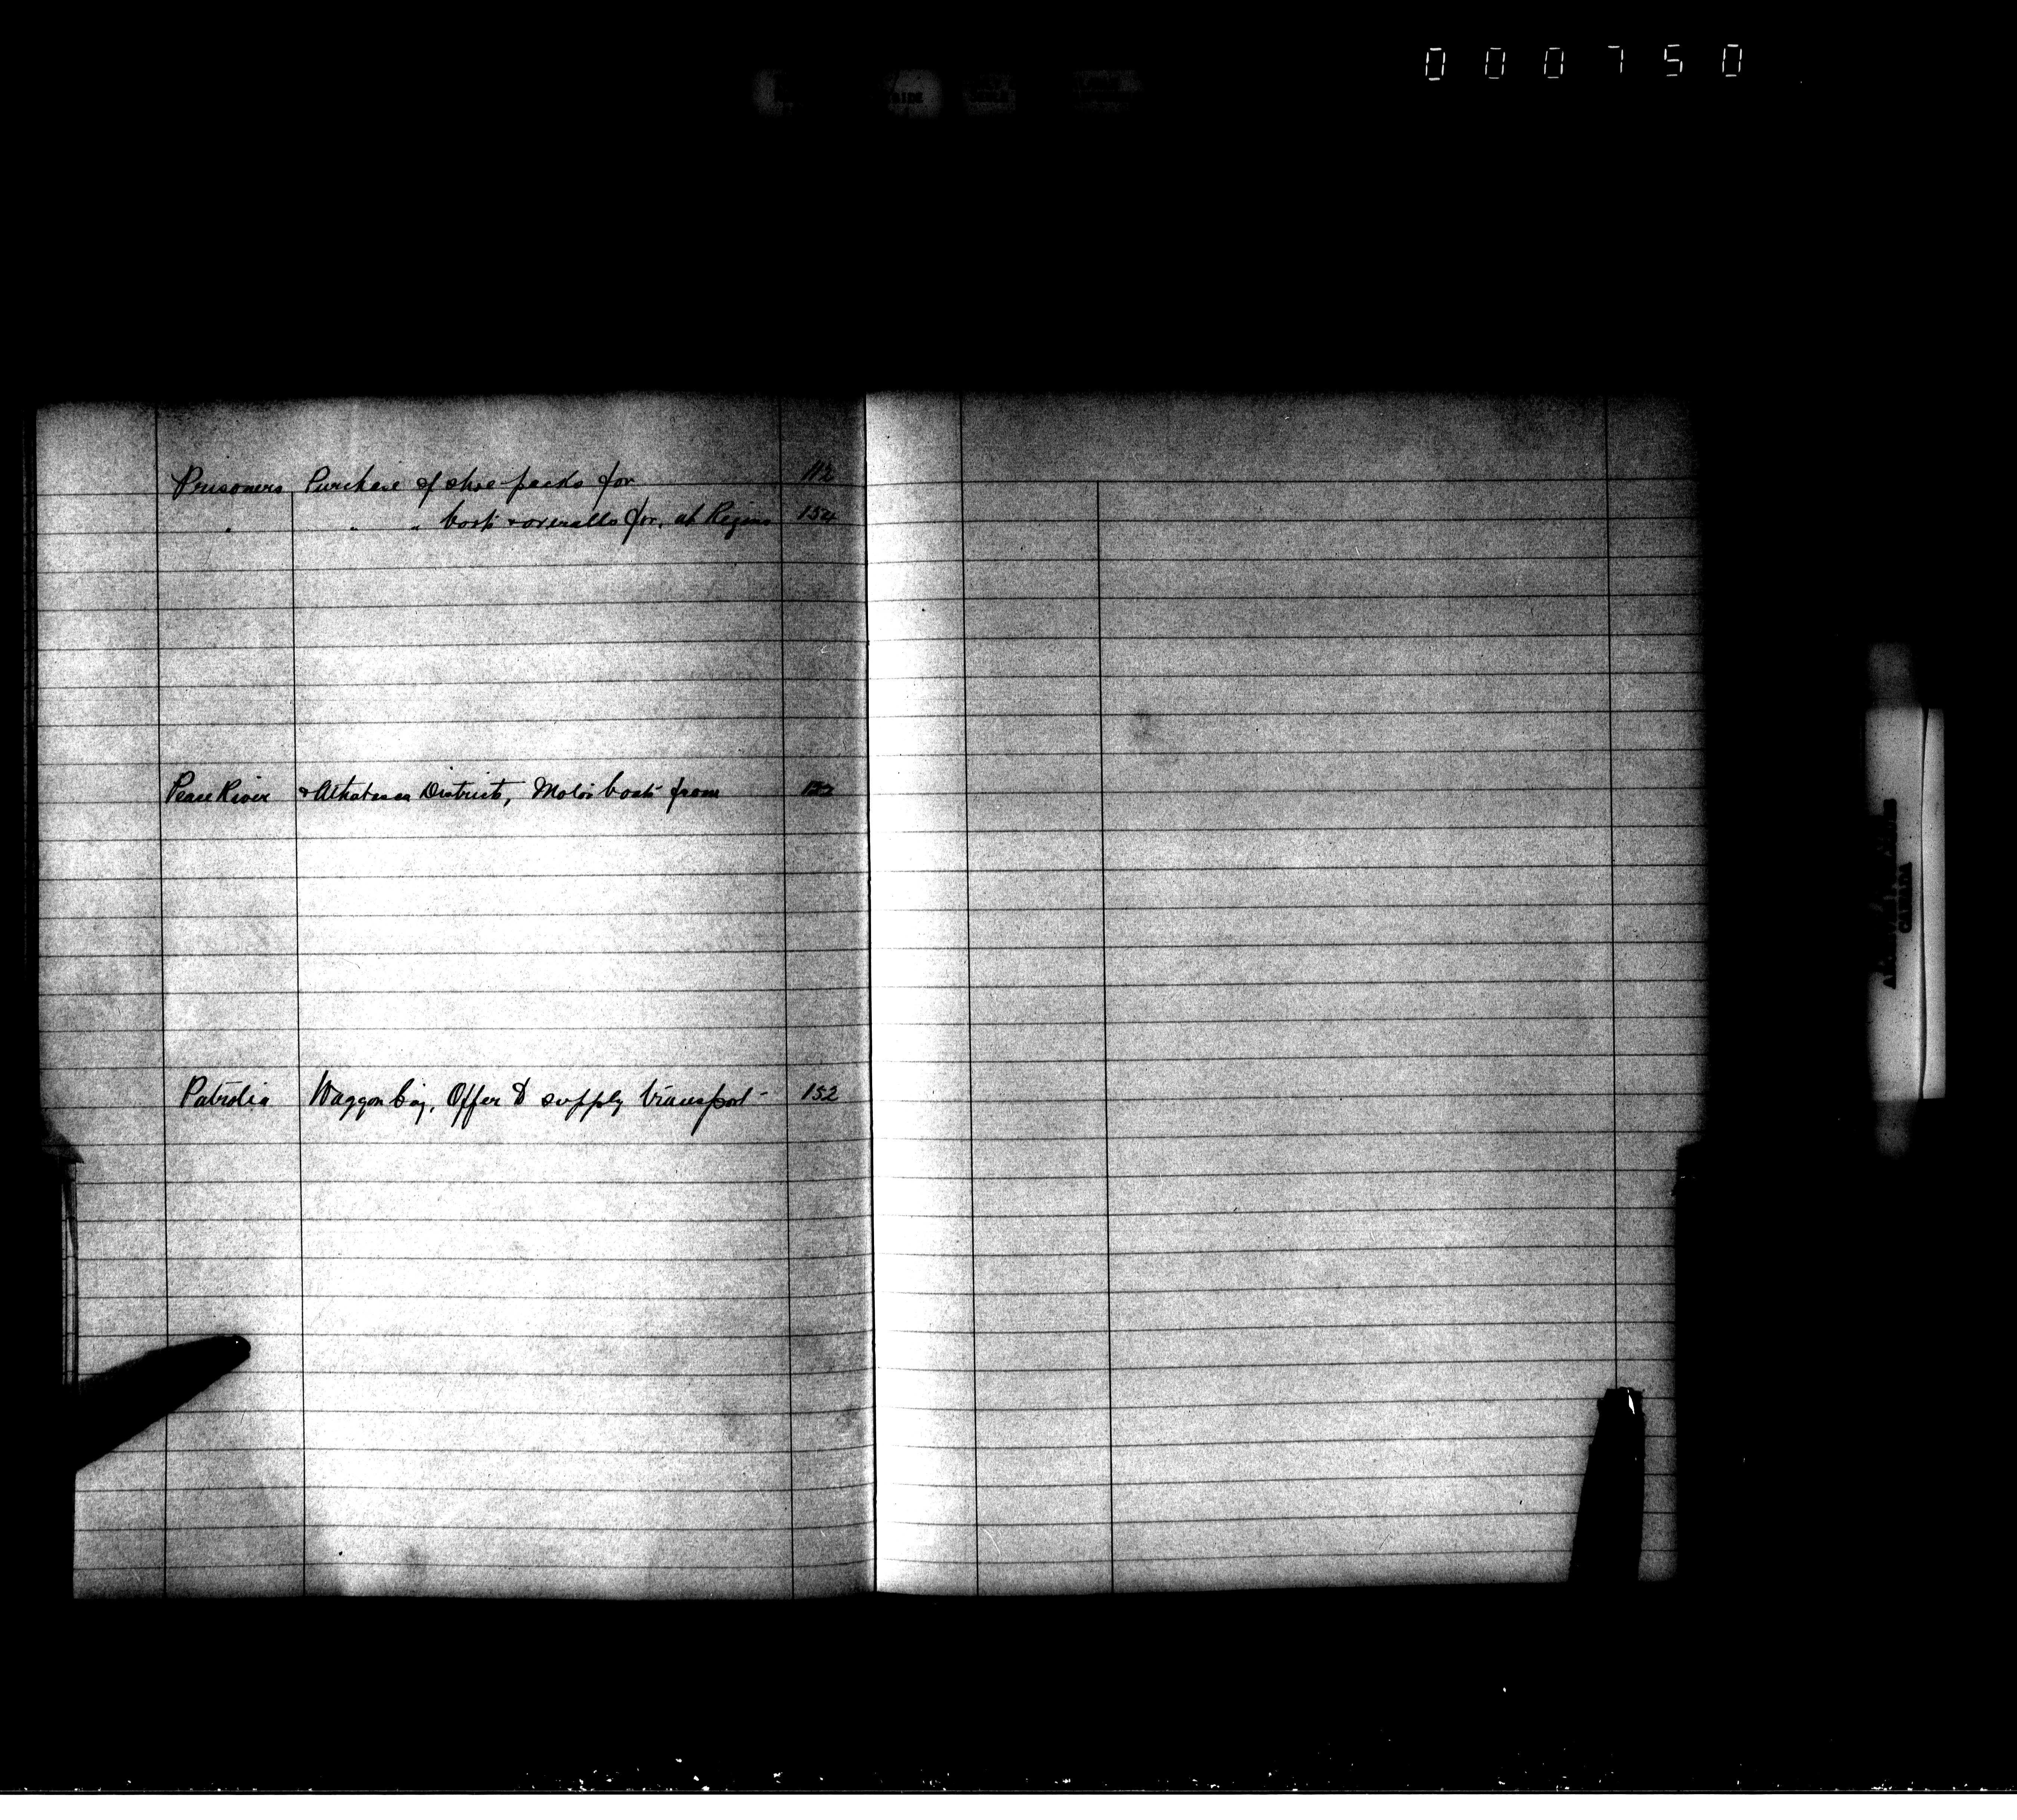 000750
Prisoners Purchase of shoe packs for 112
" " " boots & overalls for, at Regina 154
Peace River & Athabasca Districts, Motor boats from
Patrolia Waggon Coy, Offer to supply transport 152